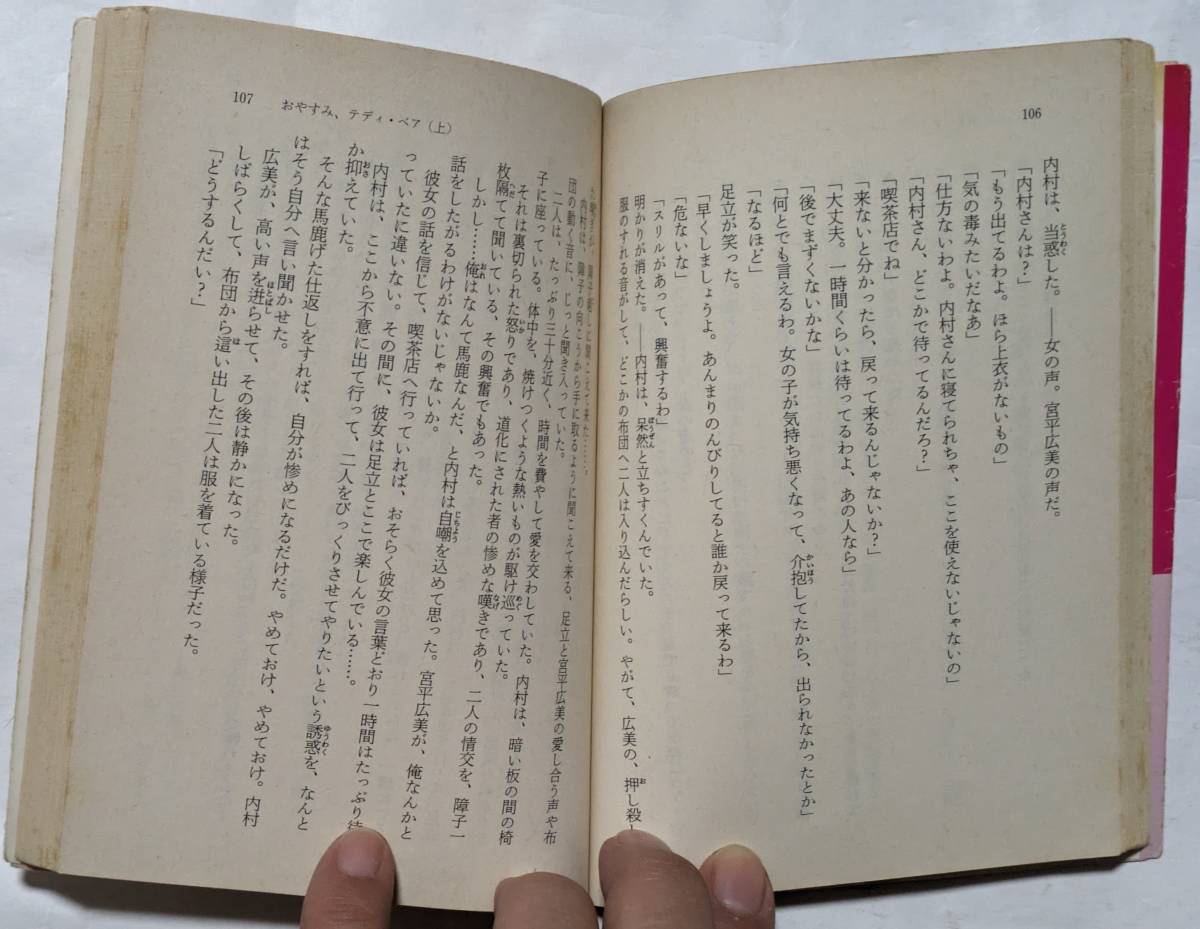 106
内村は、当惑した。――女の声。宮平広美の声だ。
「内村さんは?」
「もう出てるわよ。ほら上衣がないもの」
「気の毒みたいだなあ」
「仕方ないわよ。内村さんに寝てられちゃ、ここを使えないじゃないの」
「内村さん、どこかで待ってるんだろ?」
「喫茶店でね」
「来ないと分かったら、戻って来るんじゃないか?」
「大丈夫。一時間くらいは待ってるわよ、あの人なら」
「後でまずくないかな」
「何とでも言えるわ。女の子が気持ち悪くなって、介抱してたから、出られなかったとか」
「なるほど」
足立が笑った。
「早くしましょうよ。あんまりのんびりしてると誰か戻って来るわ」
「危ないな」
「スリルがあって、興奮するわ」
明かりが消えた。――内村は、呆然と立ちすくんでいた。
服のすれる音がして、どこかの布団へ二人は入り込んだらしい。やがて、広美の、押し殺し
107 おやすみ、テディ・ベア(上)
内村は、障子の向こうから手に取るように聞こえて来る、足立と宮平広美の愛し合う声や布
団の動く音に、じっと聞き入っていた。
二人は、たっぷり三十分近く、時間を費やして愛を交わしていた。内村は、暗い板の間の椅
子に座っている。体中を、焼けつくような熱いものが駆け巡っていた。
それは裏切られた怒りであり、道化にされた者の惨めな嘆きであり、二人の情交を、障子一
枚隔てて聞いている、その興奮でもあった。
しかし……俺はなんて馬鹿なんだ、と内村は自嘲を込めて思った。宮平広美が、俺なんかと
話をしたがるわけがないじゃないか。
彼女の話を信じて、喫茶店へ行っていれば、おそらく彼女の言葉どおり一時間はたっぷり待
っていたに違いない。その間に、彼女は足立とここで楽しんでいる……。
内村は、ここから不意に出て行って、二人をびっくりさせてやりたいという誘惑を、なんと
か抑えていた。
そんな馬鹿げた仕返しをすれば、自分が惨めになるだけだ。やめておけ、やめておけ。内村
はそう自分へ言い聞かせた。
広美が、高い声を迸らせて、その後は静かになった。
しばらくして、布団から這い出した二人は服を着ている様子だった。
「どうするんだい?」